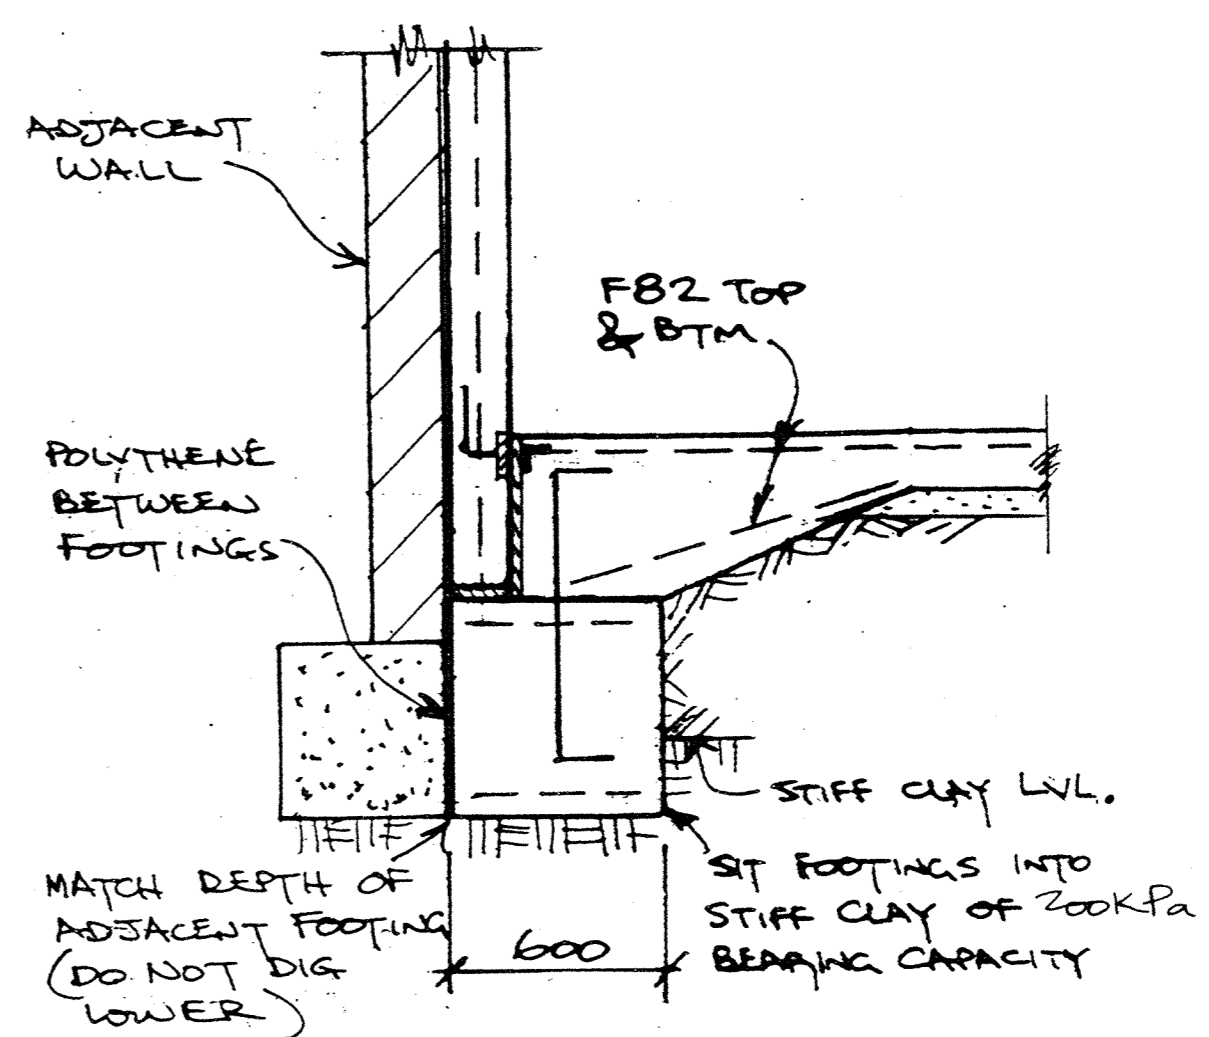 ADJACENT
WALL
F82 TOP
& BTM
POLYTHENE
BETWEEN
FOOTINGS
STIFF CLAY LVL.
MATCH DEPTH OF
ADJACENT FOOTING
(DO NOT DIG
LOWER)
600
SIT FOOTINGS INTO
STIFF CLAY OF 200KPa
BEARING CAPACITY